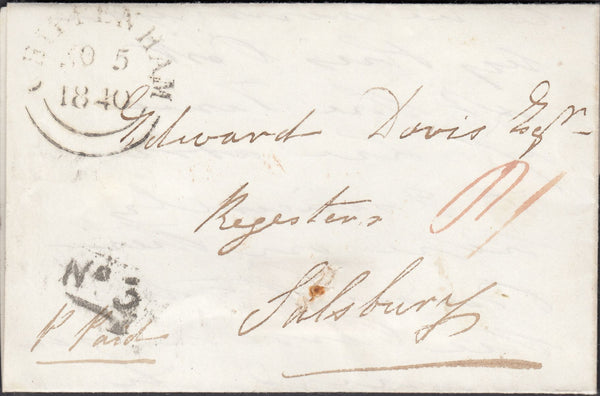 CHIPPENHAM
NO 5
1840
Edward Davis Esqr
Registers
Salsbury
No 3
P Paid